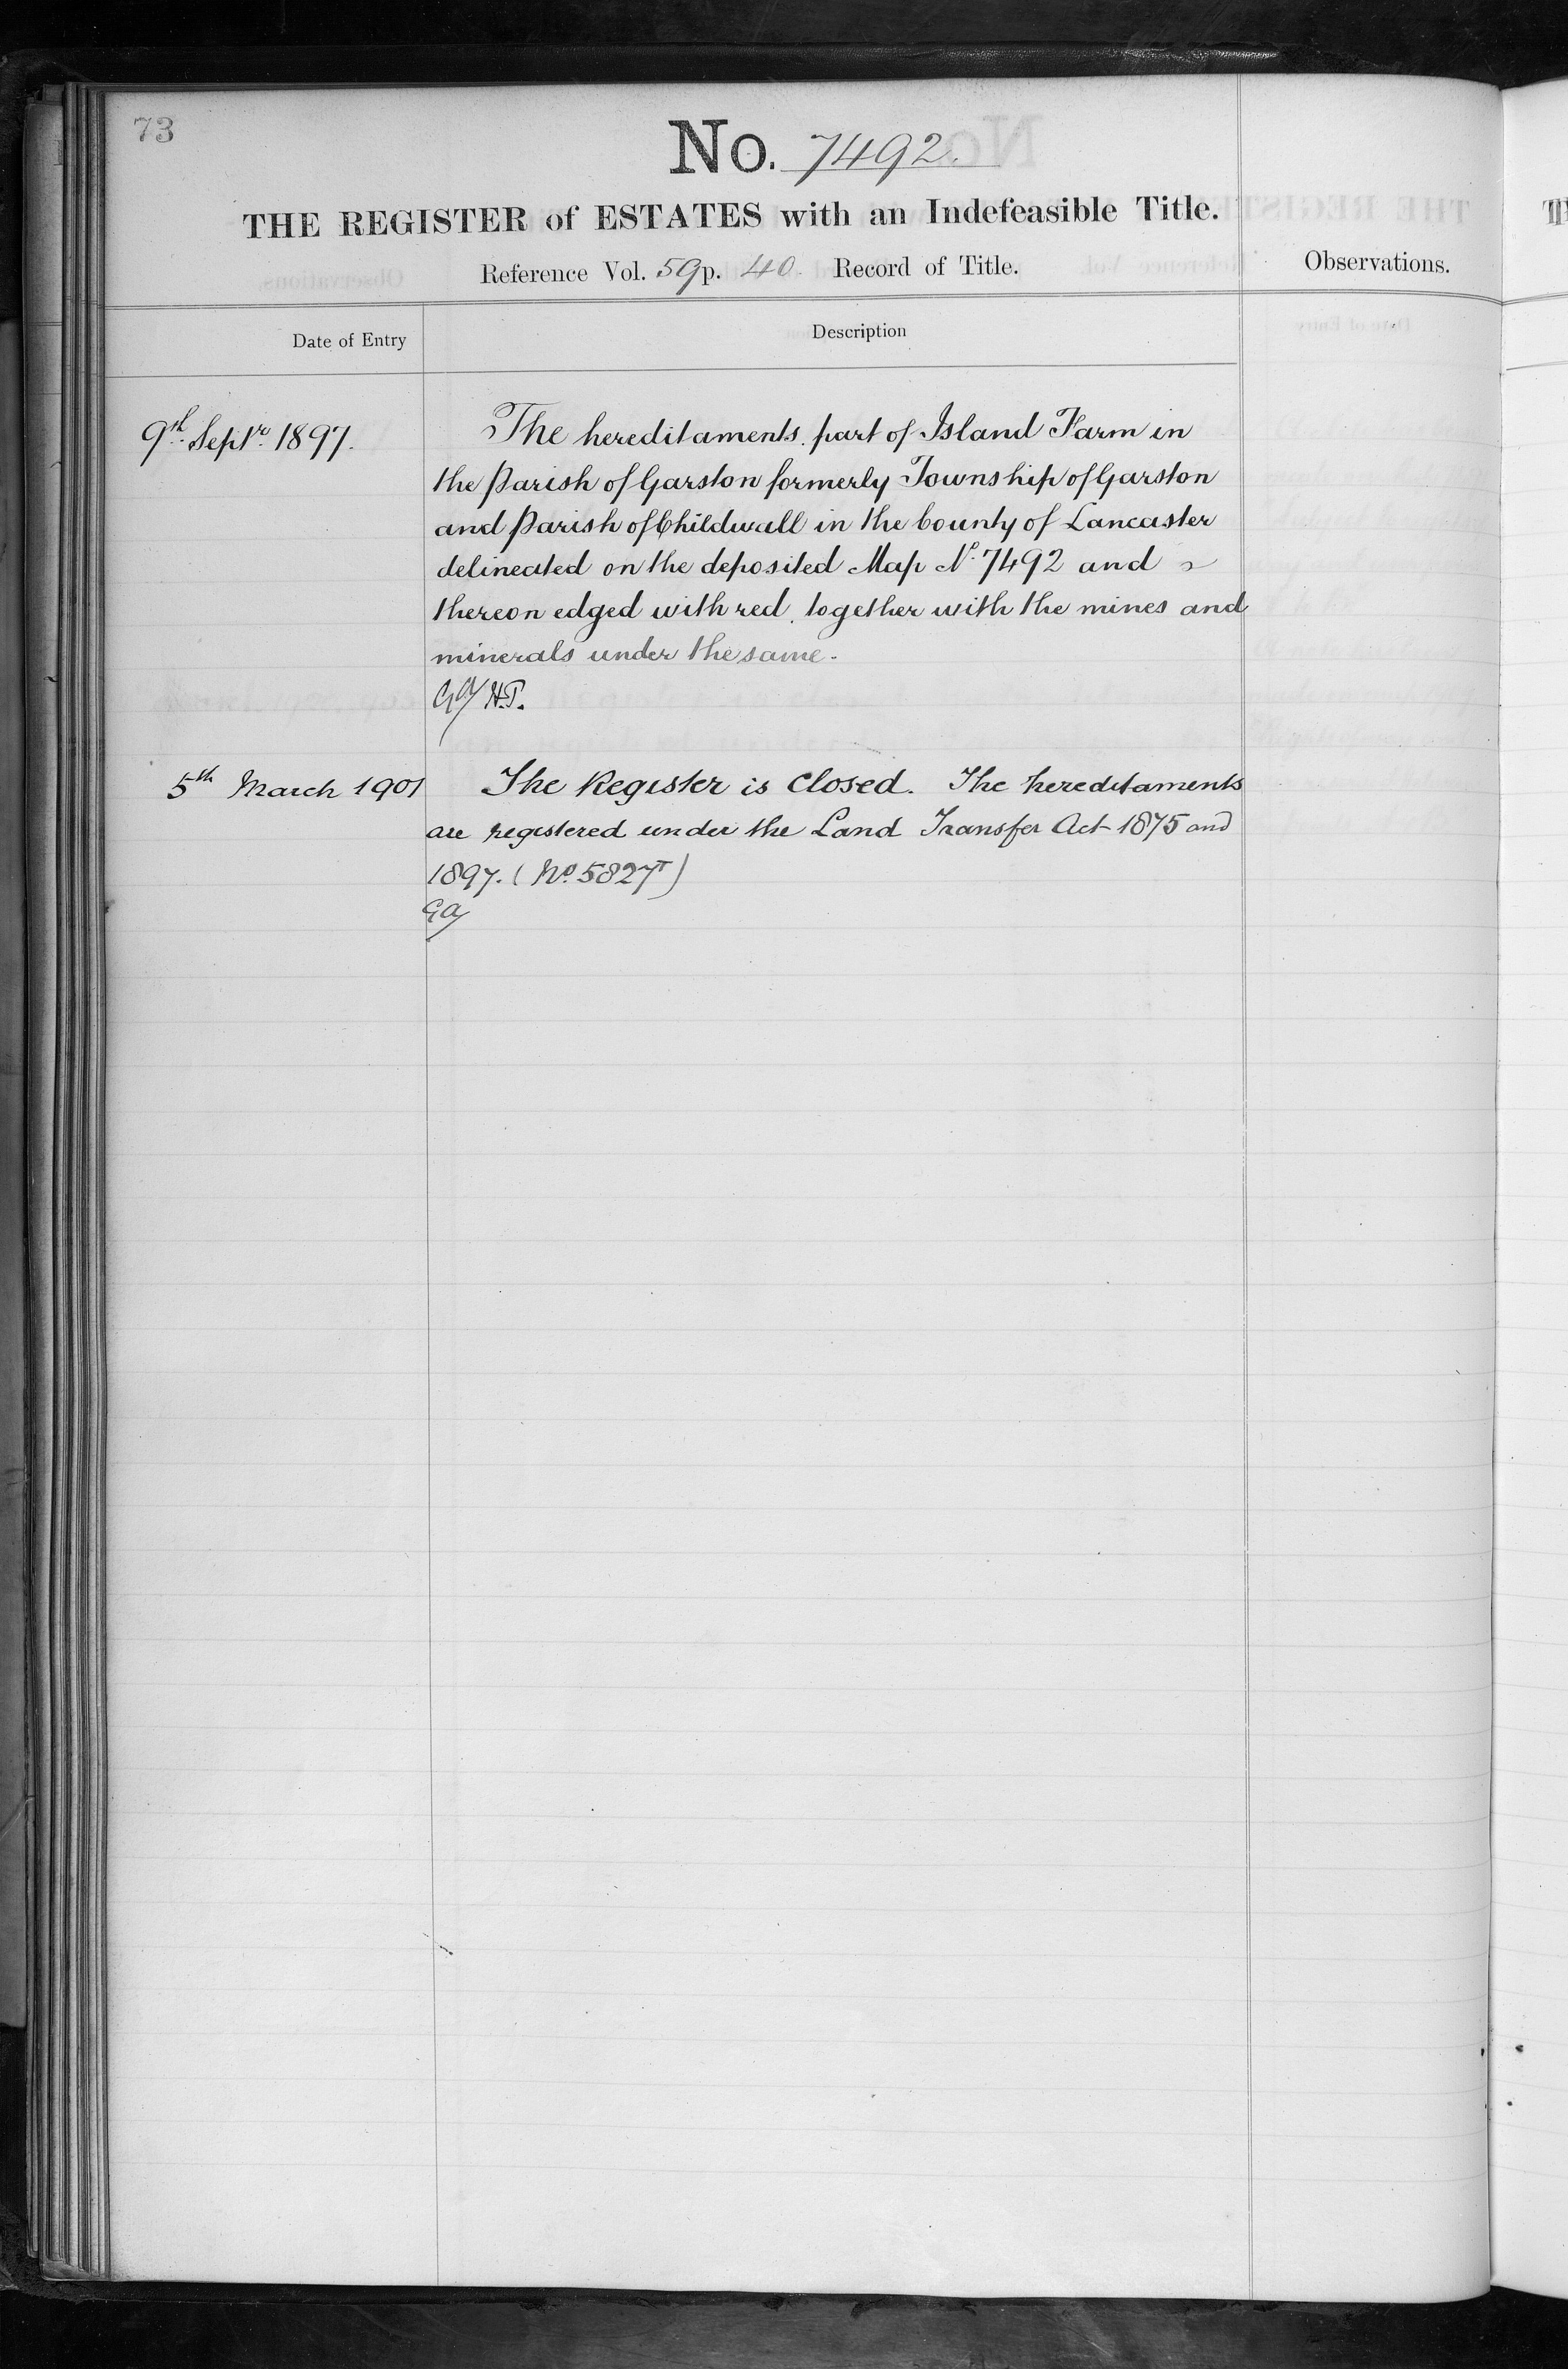 73
No. 7492.
THE REGISTER of ESTATES with an Indefeasible Title.
Reference Vol. 59 p. 40. Record of Title.
Observations.
Date of Entry
Description
9th Septr. 1897.
The hereditaments part of Island Farm in
the Parish of Garston formerly Township of Garston
and Parish of Childwall in the County of Lancaster
delineated on the deposited Map No. 7492 and
thereon edged with red, together with the mines and
minerals under the same.
GA/ H.P.
5th March 1901
The Register is Closed. The hereditaments
are registered under the Land Transfer Act 1875 and
1897. (No. 5827T)
GA/